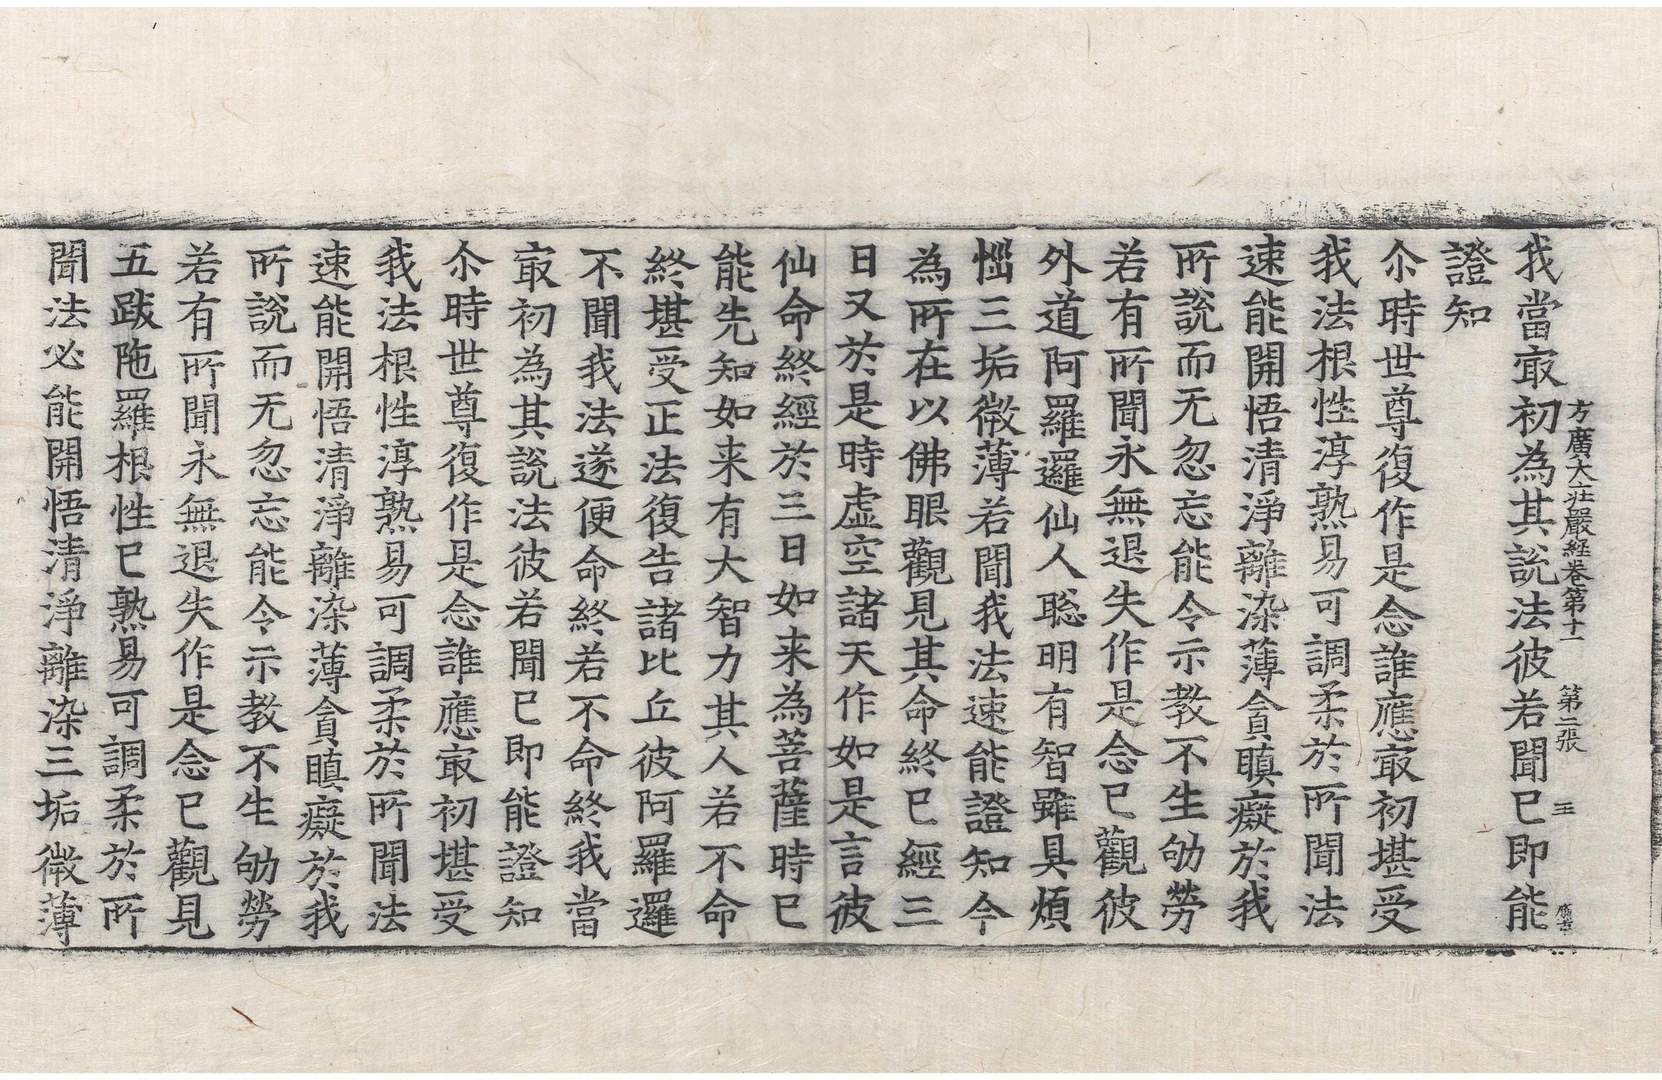 方廣大莊嚴經卷第十一 第二張 王
我當㝡初為其說法彼若聞已即能
證知
尒時世尊復作是念誰應㝡初堪受
我法根性淳熟易可調柔於所聞法
速能開悟清淨離染薄貪瞋癡於我
所說而无忽忘能令示教不生劬勞
若有所聞永無退失作是念已觀彼
外道阿羅邏仙人聡明有智雖具煩
惱三垢微薄若聞我法速能證知今
為所在以佛眼觀見其命終已經三
日又於是時虛空諸天作如是言彼
仙命終經於三日如来為菩薩時已
能先知如来有大智力其人若不命
終堪受正法復告諸比丘彼阿羅邏
不聞我法遂便命終若不命終我當
㝡初為其說法彼若聞已即能證知
尒時世尊復作是念誰應㝡初堪受
我法根性淳熟易可調柔於所聞法
速能開悟清淨離染薄貪瞋癡於我
所說而无忽忘能令示教不生劬勞
若有所聞永無退失作是念已觀見
五跋陁羅根性已熟易可調柔於所
聞法必能開悟清淨離染三垢微薄